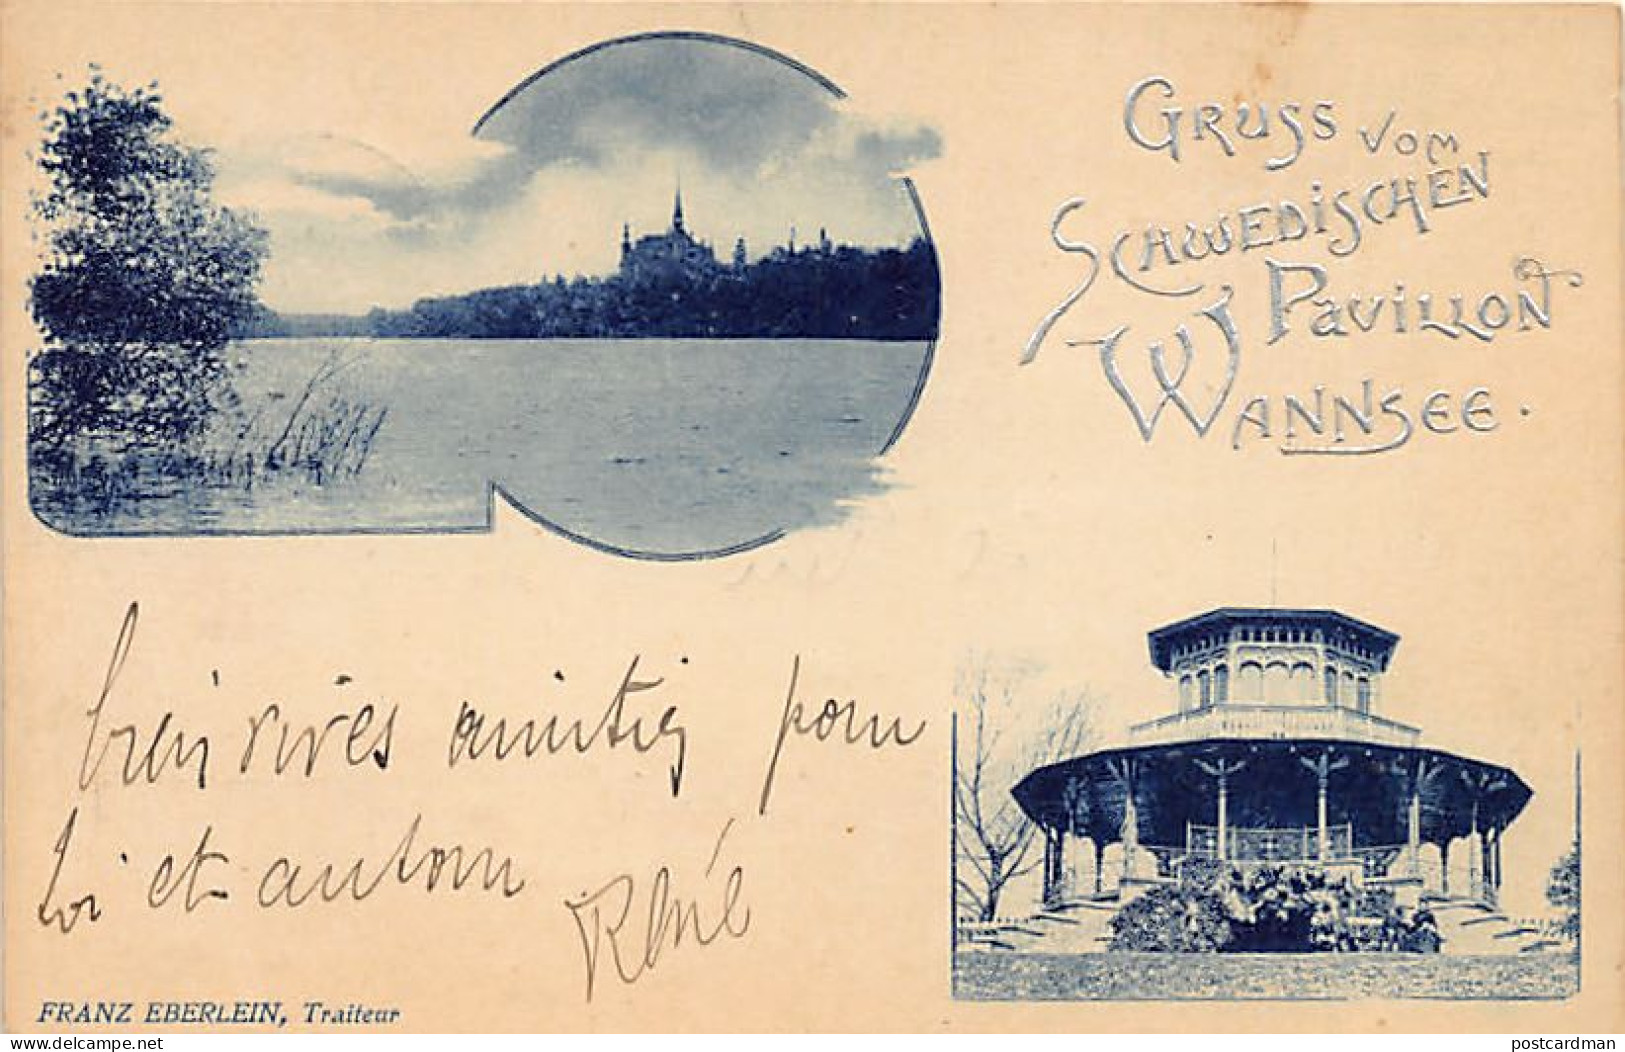 GRUSS VOM
SCHWEDISCHEN
PAVILLON
WANNSEE.
bien vives amitiés pour
toi et autour
René
FRANZ EBERLEIN, Traiteur
delcampe.net
postcardman